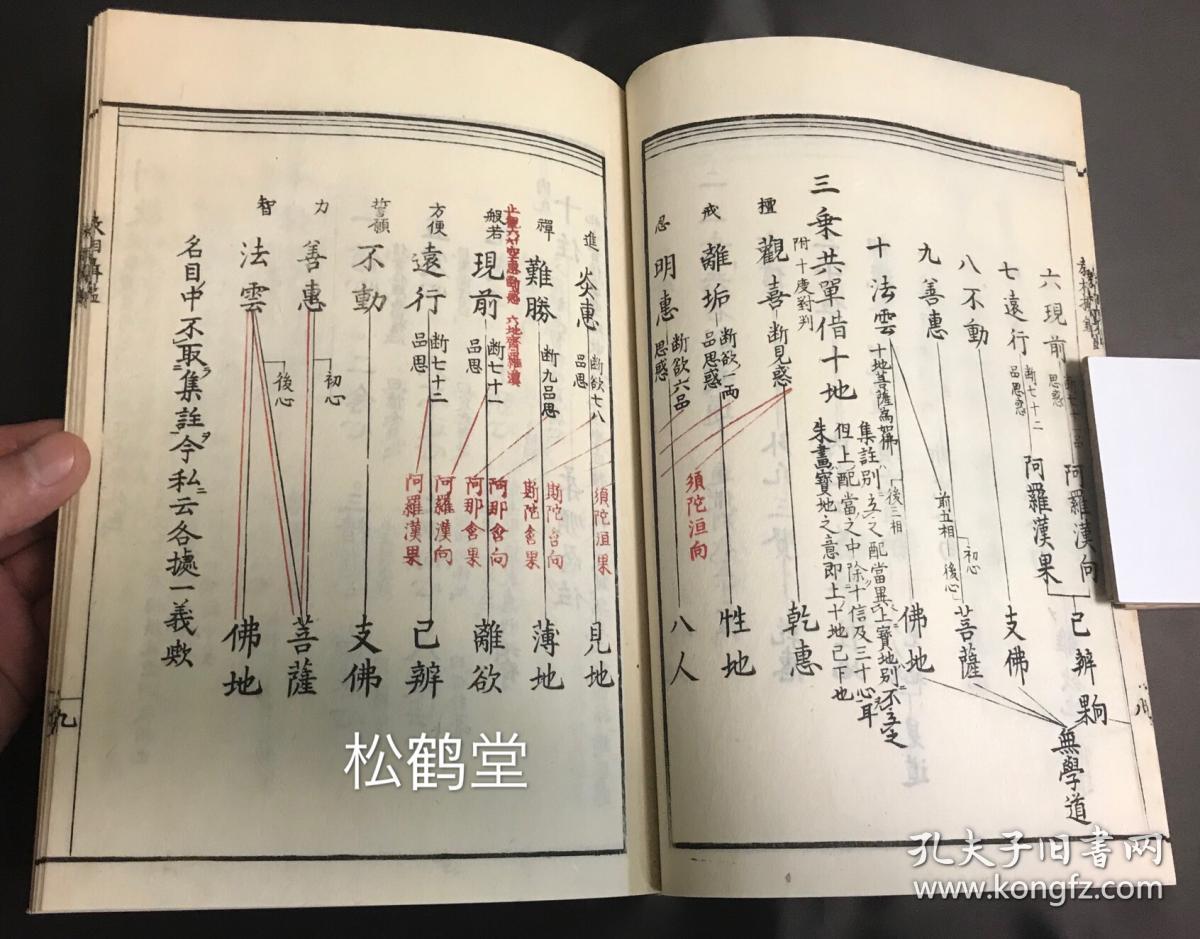 六現前
思惑
阿羅漢向
已辨
無學道
七遠行
断七十二
品思惑
阿羅漢果
八不動
支佛
九善惠
前五相
初心
後心
菩薩
十法雲
十地菩薩為如佛
後三相
佛地
三乗共單借十地
附十度對判
集註別立之配當異上寶地別不立之
但上配當之中除十信及三十心耳
朱畫寶地之意即上十地已下也
檀
觀喜
断見惑
乾惠
戒
離垢
断欲一両
品思惑
須陀洹向
性地
忍
明惠
断欲六品
思惑
八人
進
炎惠
断欲七八
品思
須陀洹果
見地
禪
難勝
断九品思
斯陀含向
斯陀含果
薄地
六地齊羅漢
般若
現前
断七十一
品思
阿那含向
阿那含果
離欲
方便
遠行
断七十二
品思
阿羅漢向
阿羅漢果
已辨
誓願
不動
支佛
力
善惠
初心
菩薩
智
法雲
後心
佛地
名目中不取集註今私云各據一義歟
九
松鹤堂
孔夫子旧书网
www.kongfz.com